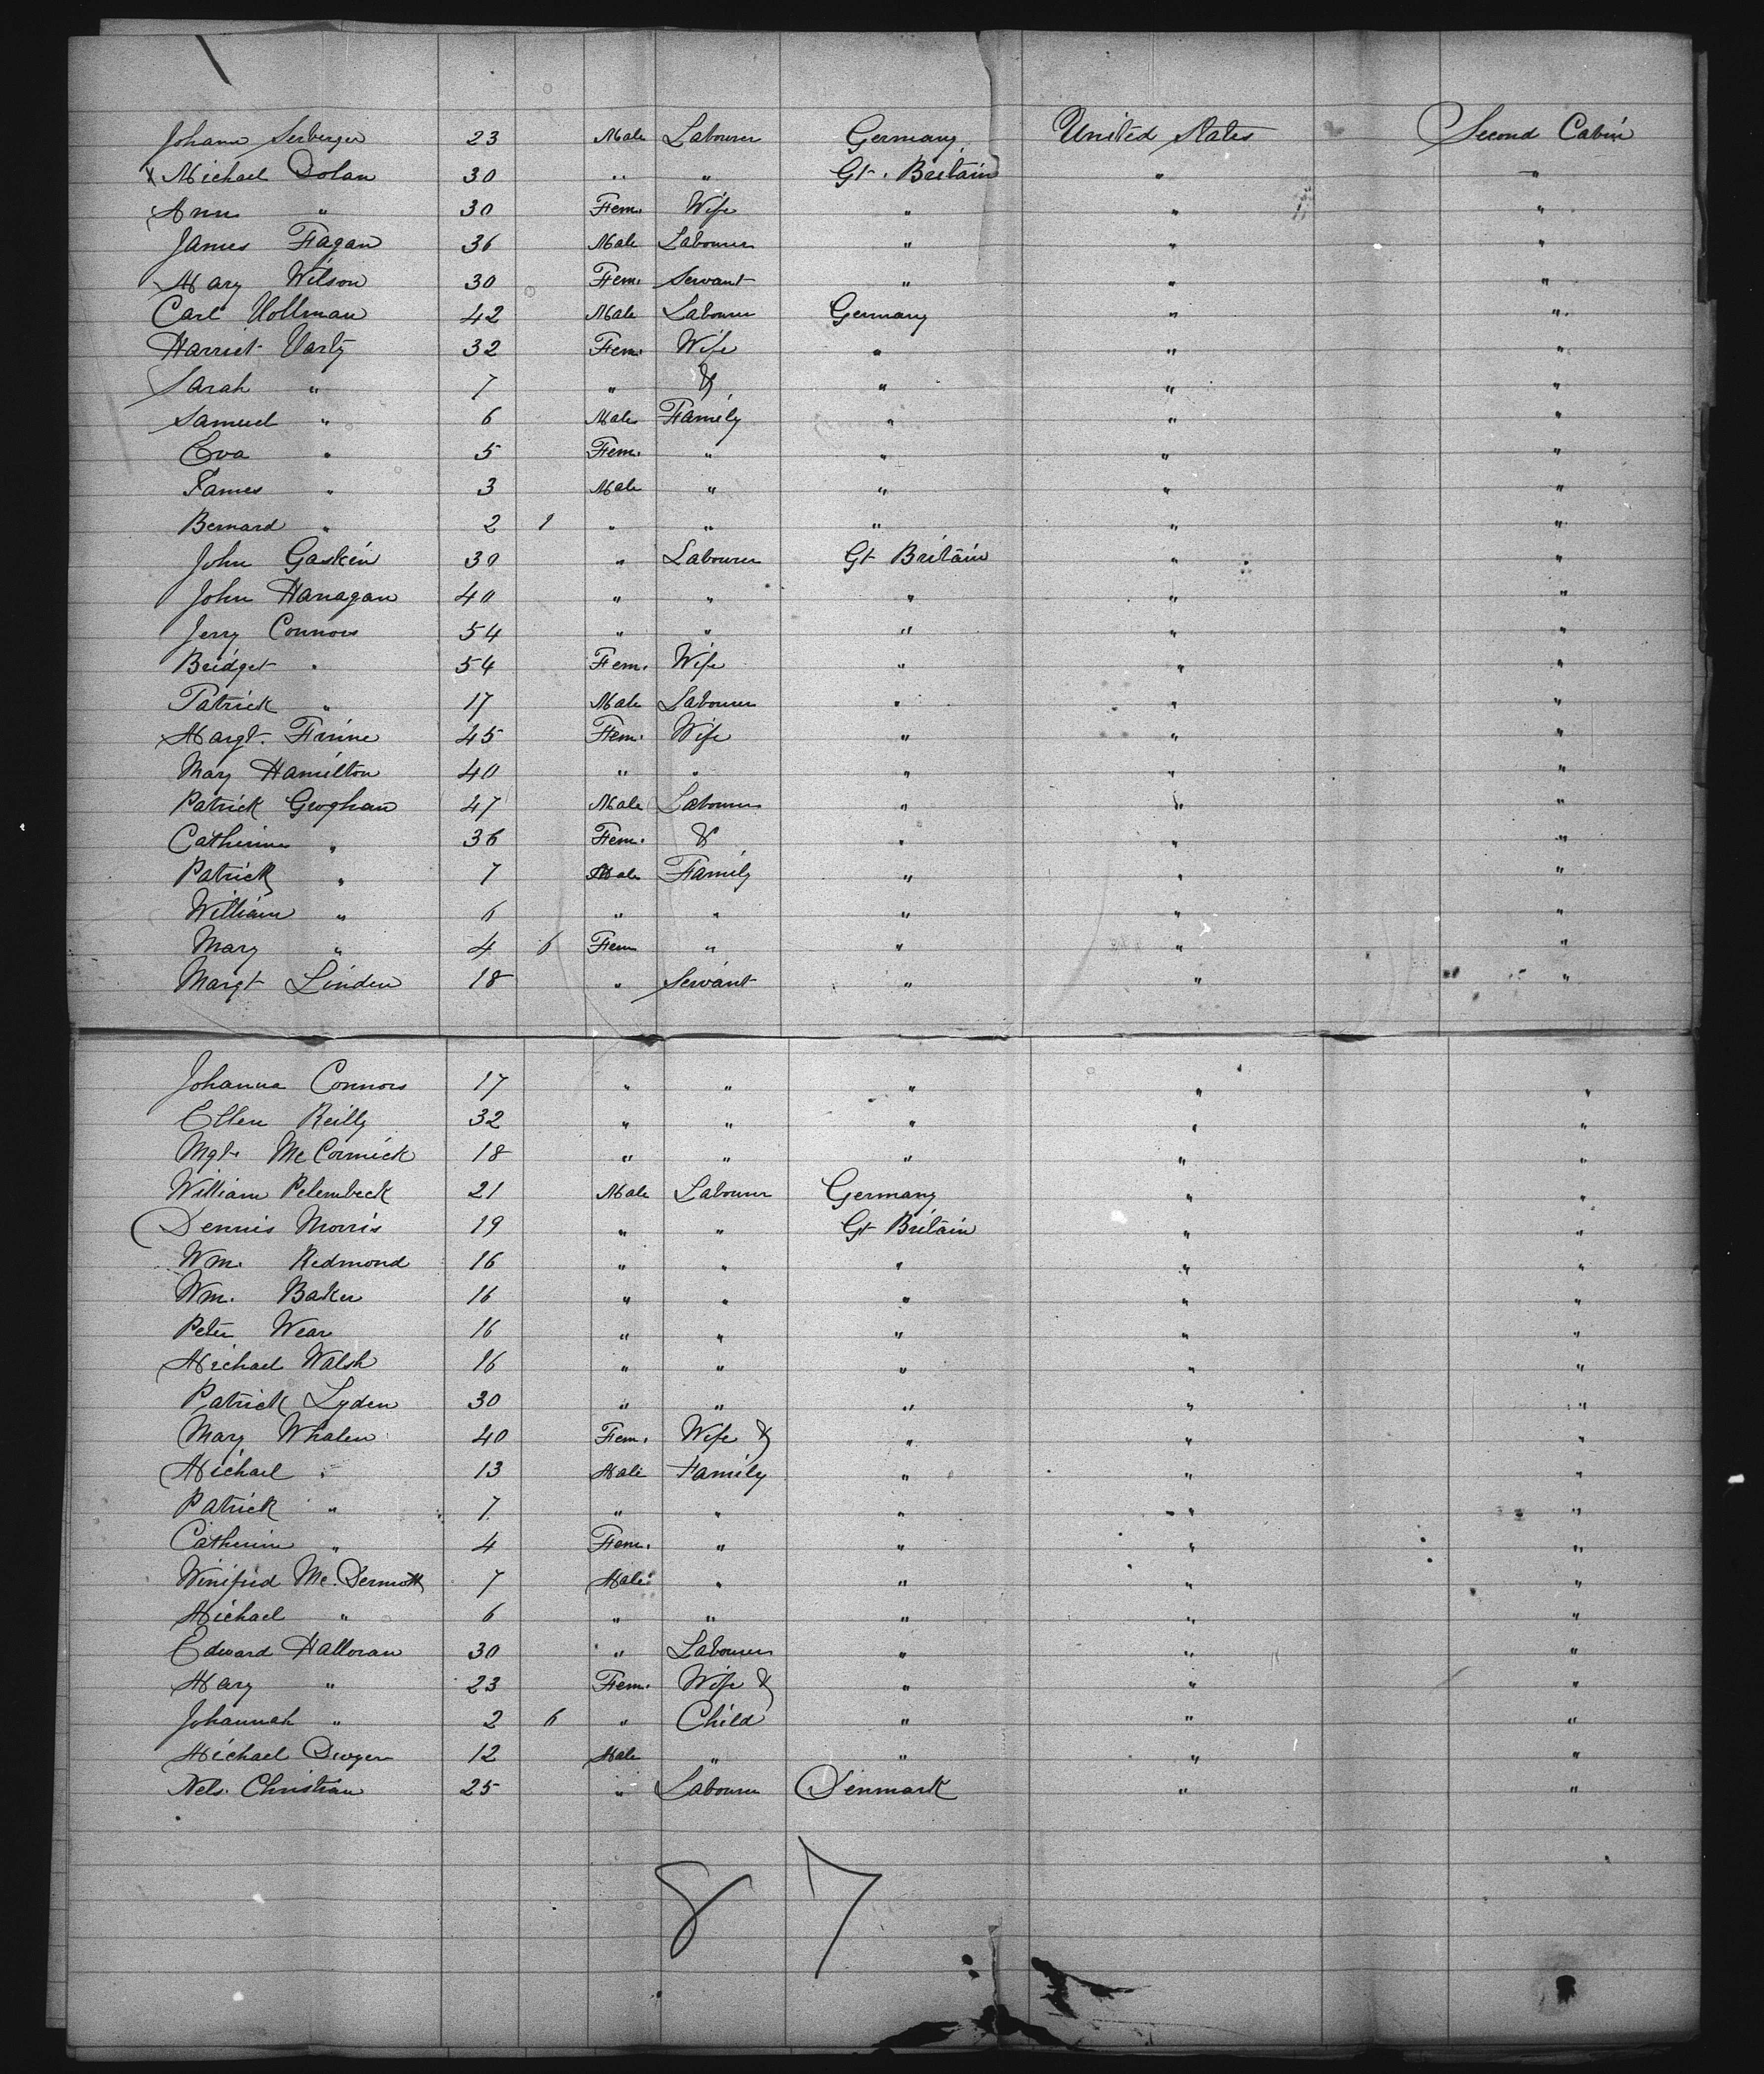 Johann Serberger 23 Male Labourer Germany United States Second Cabin
x Michael Dolan 30 " " Gt. Britain " "
Ann " 30 Fem. Wife " " "
James Fagan 36 Male Labourer " " "
Mary Wilson 30 Fem. Servant " " "
Carl Vollman 42 Male Labourer Germany " "
Harriet Varty 32 Fem. Wife " " "
Sarah " 7 " & " " "
Samuel " 6 Male Family " " "
Eva " 5 Fem. " " " "
James " 3 Male " " " "
Bernard " 2 9 " " " " "
John Gaskin 30 " Labourer Gt Britain " "
John Hanagan 40 " " " " "
Jerry Connors 54 " " " " "
Bridget " 54 Fem. Wife " " "
Patrick " 17 Male Labourer " " "
Margt. Finne 45 Fem. Wife " " "
Mary Hamilton 40 " " " " "
Patrick Geoghan 47 Male Labourer " " "
Catherine " 36 Fem. & " " "
Patrick " 7 Male Family " " "
William " 6 " " " " "
Mary " 4 6 Fem " " " "
Margt Linden 18 " Servant " " "
Johanna Connors 17 " " " " "
Ellen Reilly 32 " " " " "
Mgt. McCormick 18 " " " " "
William Petersbeck 21 Male Labourer Germany " "
Dennis Morris 19 " " Gt Britain " "
Wm. Redmond 16 " " " " "
Wm. Baker 16 " " " " "
Peter Wear 16 " " " " "
Michael Walsh 16 " " " " "
Patrick Lyden 30 " " " " "
Mary Whalen 40 Fem. Wife & " " "
Michael " 13 Male Family " " "
Patrick " 7 " " " " "
Catherine " 4 Fem. " " " "
Winifred Mc.Dermott 7 Male " " " "
Michael " 6 " " " " "
Edward Halloran 30 " Labourer " " "
Mary " 23 Fem. Wife & " " "
Johannah " 2 6 " Child " " "
Michael Dwyer 12 Male " " " "
Nels. Christian 25 " Labourer Denmark " "
87